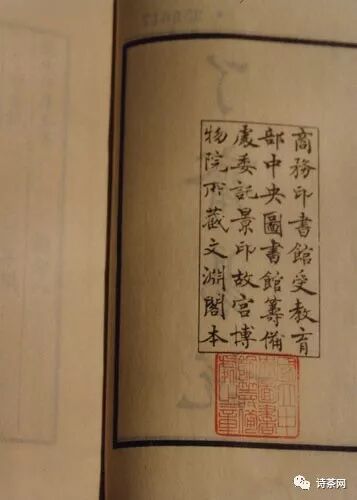 商務印書館受教育
部中央圖書館籌備
處委託景印故宮博
物院所藏文淵閣本
诗茶网